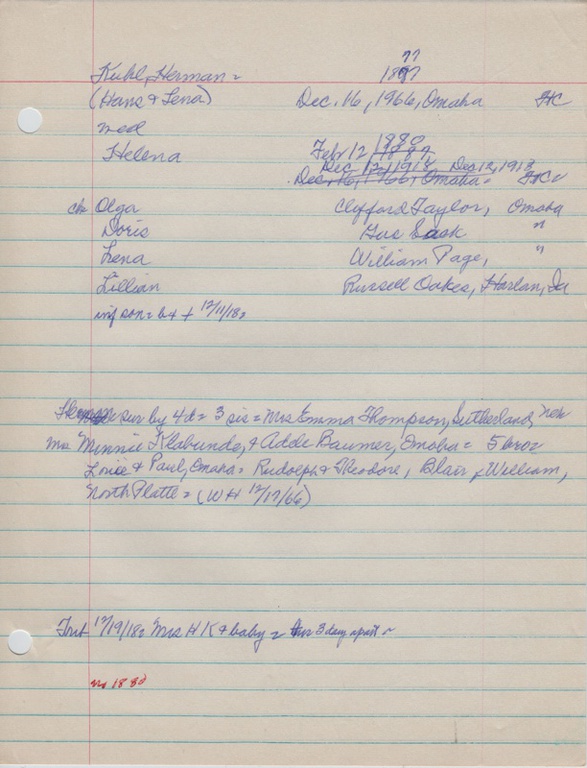 77
Kuhl, Herman = 1877
(Hans & Lena) Dec. 16, 1966, Omaha HC
med
Helena Feb 12, 1880
Dec 12, 1918 Dec 12, 1918
Dec 16, 1966, Omaha = HC
ch Olga Clifford Taylor, Omaha
Doris Gus Sask "
Lena William Page, "
Lillian Russell Oakes, Harlan, Ia
inf son = b & + 12/11/18 =
sur by 4 d = 3 sis = Mrs Emma Thompson, Sutherland, New
Mrs Minnie Klabunde, & Adde Baumer, Omaha = 5 bro =
Louie & Paul, Omaha = Rudolph & Theodore, Blair, William,
North Platte = (WH 12/17/66)
Trib 12/19/18 = Mrs H K & baby = 3 day apart ~
1880